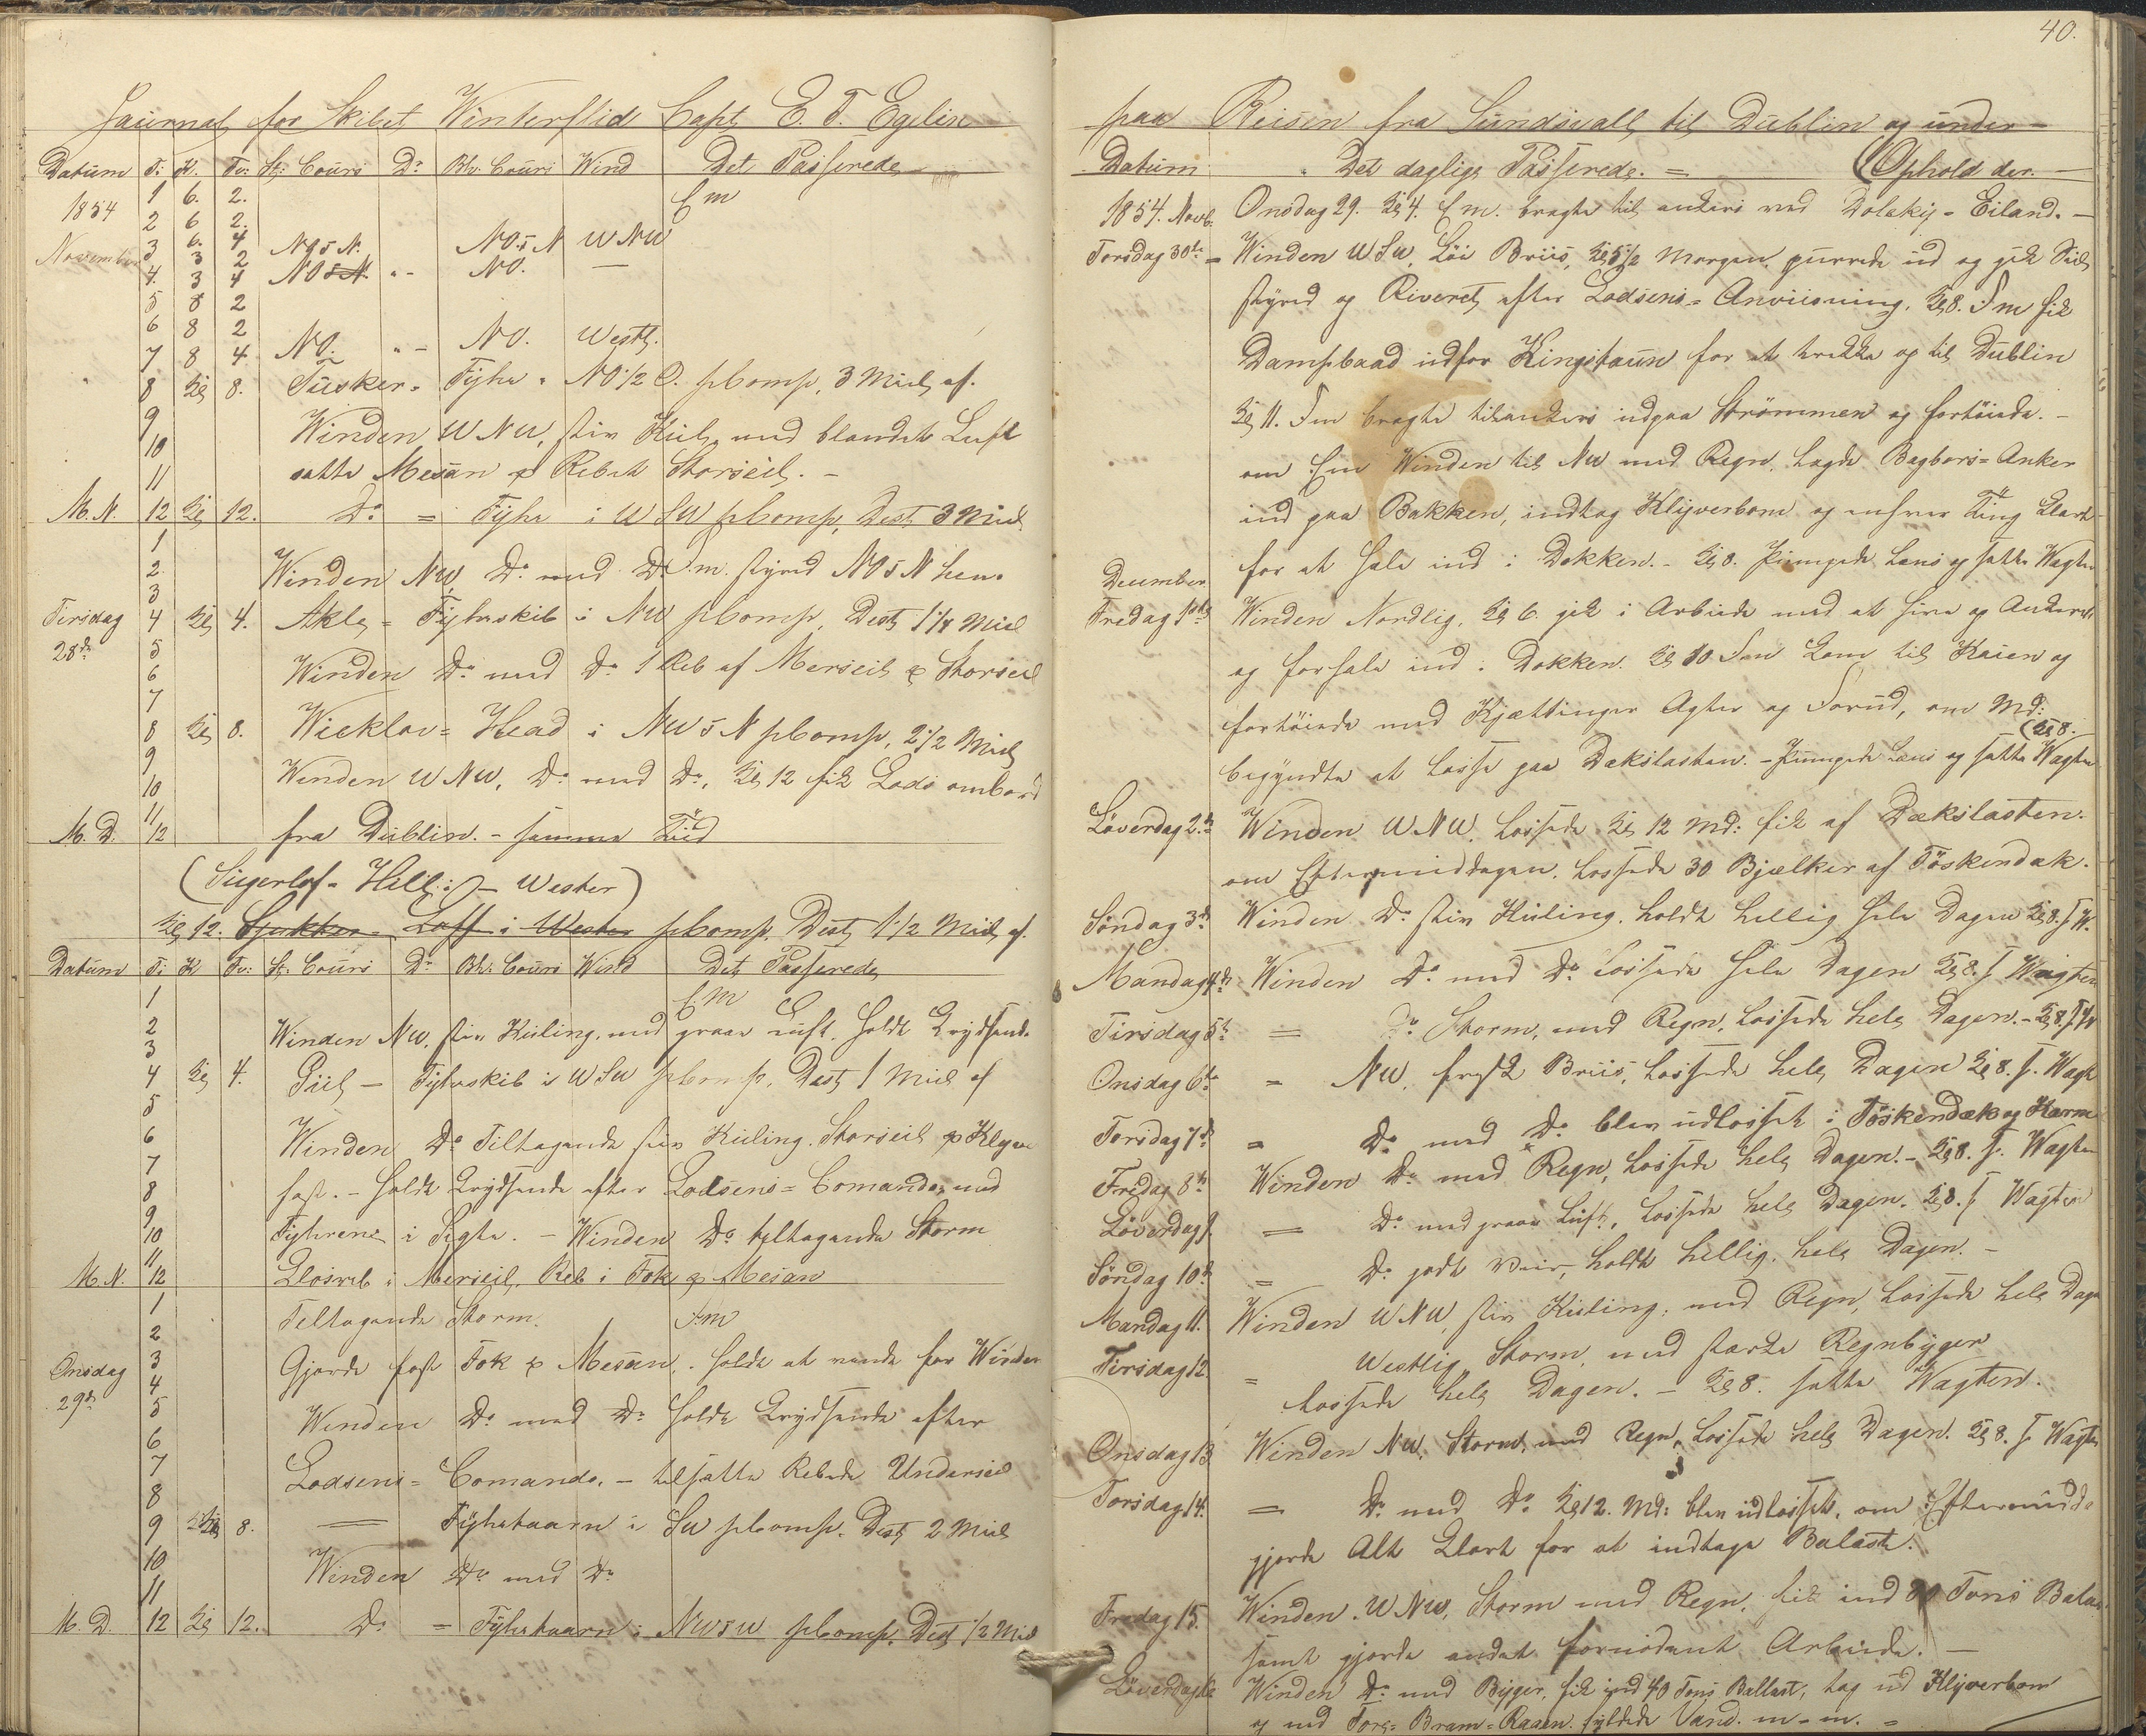 Journal for Skibet Winterflid Capt E. T. Egelin
Datum T: K. Tv: St: Cours Do Bh: Cours Wind Det Passerede
1854 1 6. 2. Em
2 6 2.
November 3 6. 4 NO5N. NO5N WNW
3 2
4. 3 4 NO5N. " - NO. —
5 8 2
6 8 2
7 8 4. NO. " - NO. Westl.
8 Kl 8. Tusker = Fyhr = NO1/2O. pComp, 3 Miil af.
9 Winden WNW, stiv Kuling med blandet Luft
10
11 satte Mesan & Rebet Storseil. -
M.N. 12 Kl 12. Do = Fyhr i WSW pComp, Dest 3 Miil
1
2. Winden NW, Do med Do Fm. styred NO5N hen.
3
Tirsdag 4 Kl 4. Fyhrskib i NW pComp, Dest 1 1/4 Miil
28de 5
6 Winden Do med Do 1 Reb af Merseil & Storseil
7
8 Kl 8. Wicklow = Head i NW5N pComp, 2 1/2 Miil
9
10 Winden WNW, Do med Do, Kl 12 fik Lods ombord
11
M.D. 12 fra Dublin. - samme Tiid
(Sugerlof = Hill: i - Wester)
Kl 12. i Wester pComp. Dest 1 1/2 Miil af.
Datum T: K Tv: St: Cours Do Bh: Cours Wind Det Passerede
1 Em
2 Winden NW. stiv Kuling, med graae Luft. holdt Krydsende
3
4 Kl 4. Fyhrskib i WSW pComp. Dest 1 Miil af
5
6 Winden Do Tiltagende stiv Kuling. Storseil & Klyver
7
8 fast. - holdt Krydsende efter Lodsens = Comando, med
9
10 Fyhrene i Sigte. - Winden Do tiltagende Storm
11
M.N. 12 Klosreb i Merseil, Reb i Fok & Mesan
1 Teltagende Storm. Fm
2
Onsdag 3 Gjorde fast Fok & Mesan, holdt at vende for Winden
29de 4
5 Winden Do med Do holdt Krydsende efter
6
7 Lodsens = Comando. - tilsatte Rebede Underseil
8
9 Kl 8. = Fyhrtaarn i SW pComp. Dest 2 Miil
10 Winden Do med Do
11
M.D. 12 Kl 12. Do = Fyhrtaarn i NW5W pComp. Dest 1/2 Miil
40.
paa Reisen fra Sundsvall til Dublin og under =
Datum Det daglige Passerede. = (Ophold der. -
1854. Novb. Onsdag 29. Kl 4. Em. bragte til ankers ved Dolekij = Eiland. -
Torsdag 30te = Winden WSW. Löi Briis, Kl 5 1/2 Morgen, purrede ud og gik Seil
styred op Riveret efter Lodsens = Anviisning, Kl 8. Fm fik
Dampbaad udfor Kingstaun for at trekke op til Dublin
Kl 11. Fm bragte tilankers indpaa Strömmen og fortöiede. -
om Em Winden til NW med Regn. lagde Bagbors = Anker
ind paa Bakken, indtog Klyverbom og enhver Ting Klart
for at hale ind i Dokken. - Kl 8. Pumpede Lens og satte Wagten
December
Fredag 1ste Winden Nordlig, Kl 6. gik i Arbeide med at hive op Ankeret
og forhale ind i Dokken. Kl 10 Fm kom til Kaien og
fortöiede med Kjættinger Agter og Forud, om Md:
(Kl 8.
begyndte at losse paa Dækslasten. - Pumpede Lens og satte Wagten
Löverdag 2den Winden WNW. Lossede Kl 12 Md: fik af Dækslasten.
om Eftermiddagen. lossede 30 Bjælker af Töskendæk.
Söndag 3de Winden Do stiv Kuling. holdt hellig hele Dagen Kl 8. s W.
Mandag 4de Winden Do med Do Lossede hele Dagen Kl 8. s Wagten
Tirsdag 5te = Do Storm, med Regn, Lossede hele Dagen. - Kl 8. s W
Onsdag 6te = NW. frisk Briis, Lossede hele Dagen Kl 8. s. Wagt
Torsdag 7de = Do med Do blev udlosset i Töskendæk og
Fredag 8de Winden Do med Regn, lossede hele Dagen. - Kl 8. s. Wagten
Löverdag 9. = Do med graae Luft, Lossede hele Dagen. Kl 8. s Wagten
Söndag 10de = Do godt Veir, holdt hellig. hele Dagen. -
Mandag 11. Winden WNW, stiv Kuling. med Regn, lossede hele Dage
Tirsdag 12. = Westlig Storm, med stærke Regnbyger
Lossede hele Dagen. - Kl 8. satte Wagten.
Onsdag 13. Winden NW. Storm, med Regn, Lossede hele Dagen. Kl 8. s Wagten
Torsdag 14. = Do med Do Kl 12. Md: blev udlosset, om Eftermidda
gjorde Alt Klart for at indtage Balast.
Fredag 15. Winden. WNW, Storm med Regn, fik ind Tons Balas
samt gjorde andet fornödent Arbeide. -
Löverdag 16 Winden Do med Byger, fik ind 40 Tons Ballast, tog ud Klyverbom
og ned Fore = Bram = Raaen fyldede Vand. m - m. =